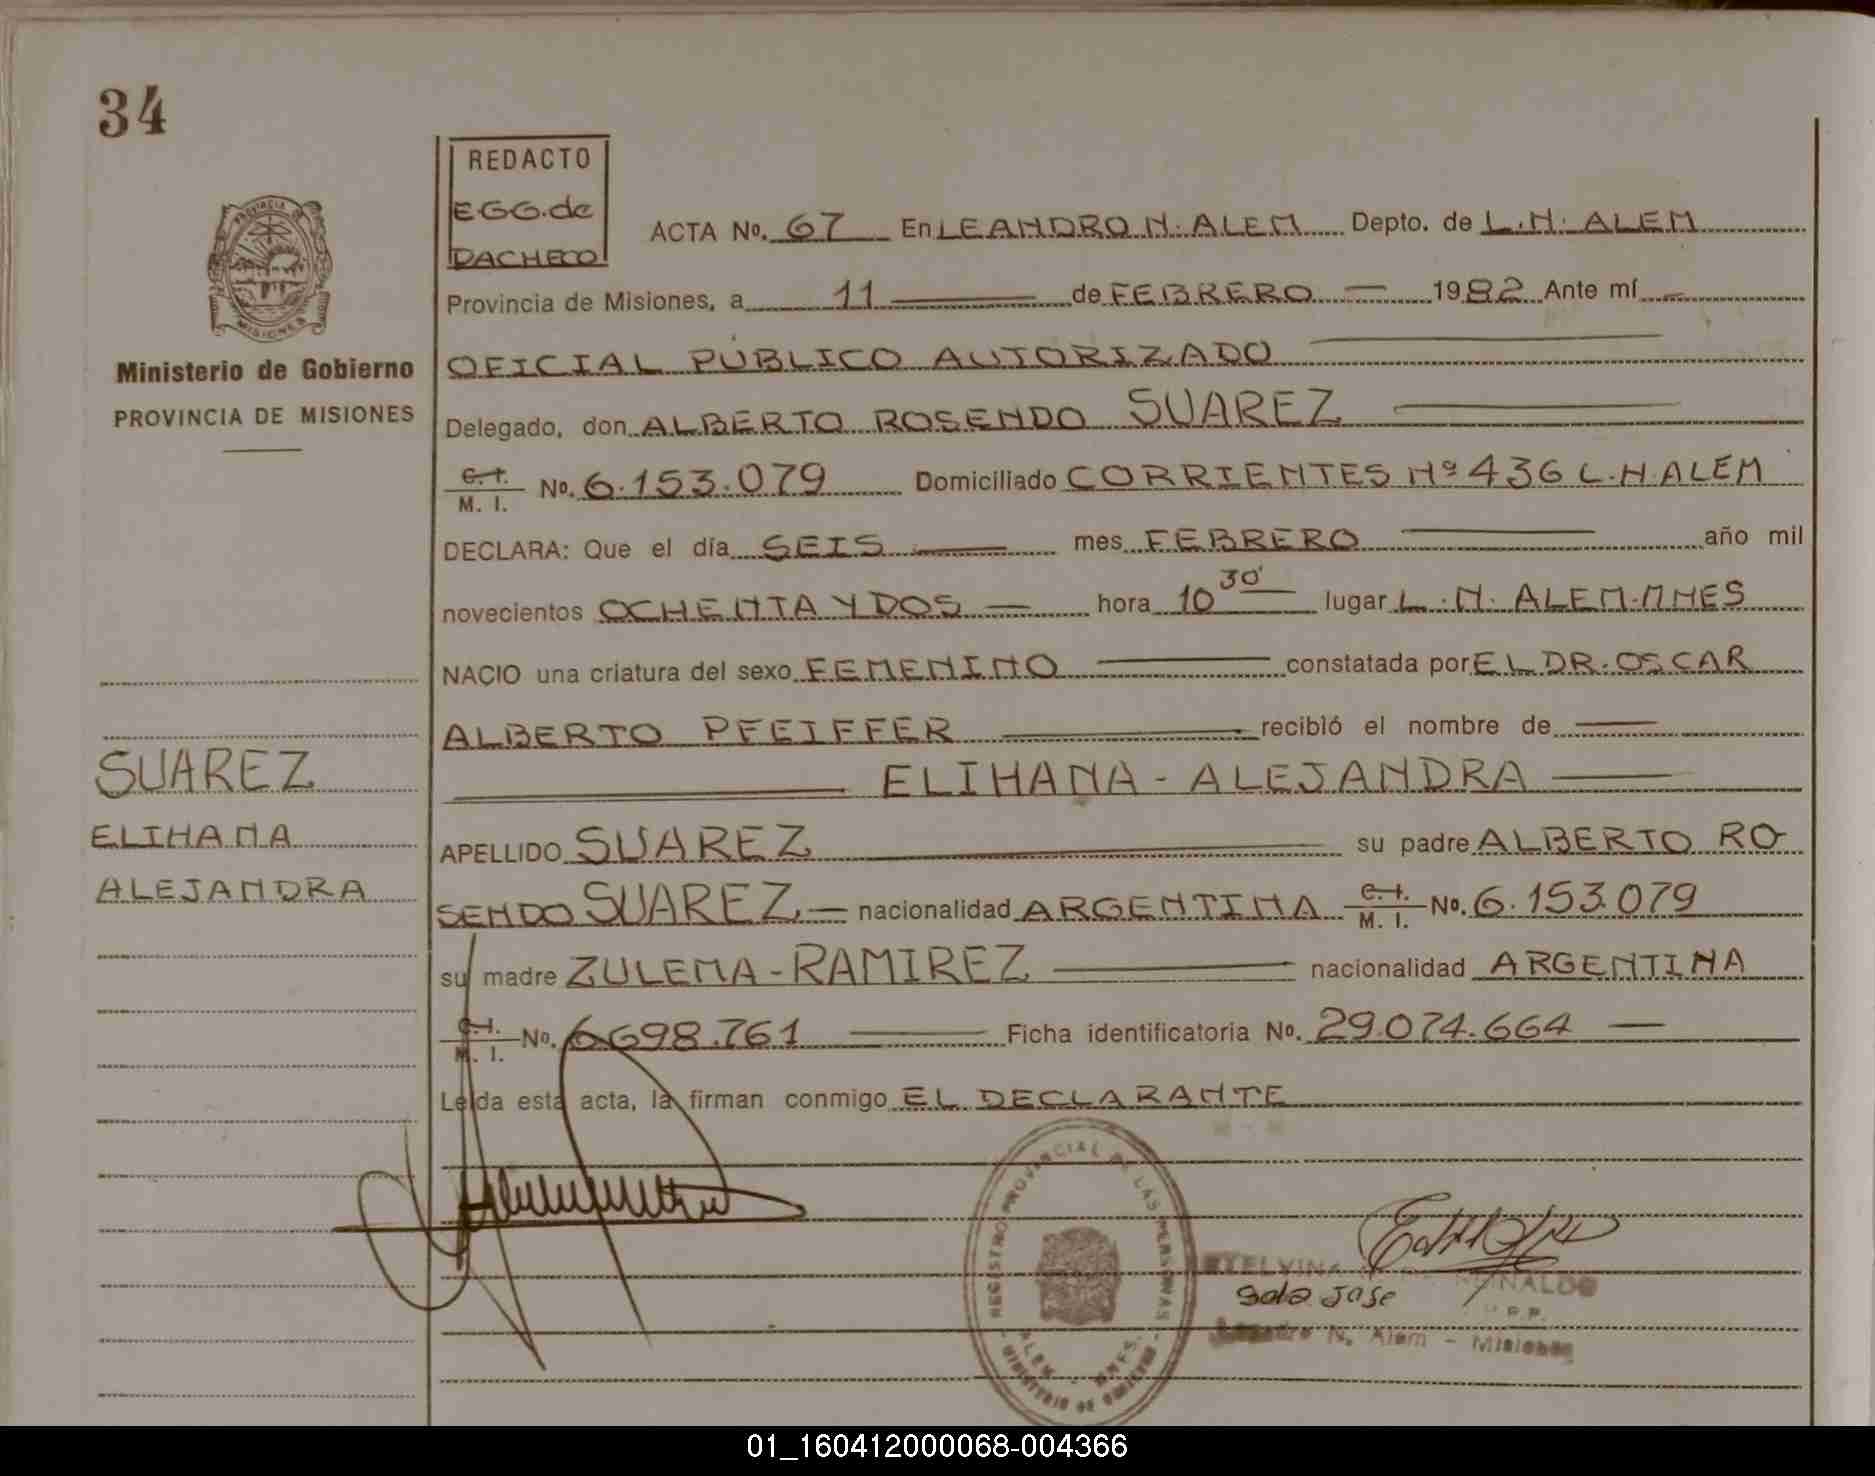 34
REDACTO
E.G.G. de
PACHECO
ACTA No. 67 En LEANDRO N. ALEM Depto. de L.N. ALEM
Provincia de Misiones, a 11 de FEBRERO 1982 Ante mí
OFICIAL PÚBLICO AUTORIZADO
Ministerio de Gobierno
PROVINCIA DE MISIONES
Delegado, don ALBERTO ROSENDO SUAREZ
C. I. / M. I. No. 6.153.079 Domiciliado CORRIENTES Nº 436 L.N. ALEM
DECLARA: Que el día SEIS mes FEBRERO año mil
novecientos OCHENTA Y DOS hora 10 30' lugar L.N. ALEM-MNES
NACIO una criatura del sexo FEMENINO constatada por EL DR. OSCAR
ALBERTO PFEIFFER recibió el nombre de
ELIHANA - ALEJANDRA
SUAREZ
ELIHANA
ALEJANDRA
APELLIDO SUAREZ su padre ALBERTO RO
SENDO SUAREZ nacionalidad ARGENTINA C. I. / M. I. No. 6.153.079
su madre ZULEMA - RAMIREZ nacionalidad ARGENTINA
C. I. / M. I. No. 6.698.761 Ficha identificatoria No. 29.074.664
Leída esta acta, la firman conmigo EL DECLARANTE
REGISTRO PROVINCIAL DE LAS PERSONAS
ALEM - MNES.
MINISTERIO DE GOBIERNO
ETELVINA
Leandro N. Alem - Misiones
01_160412000068-004366